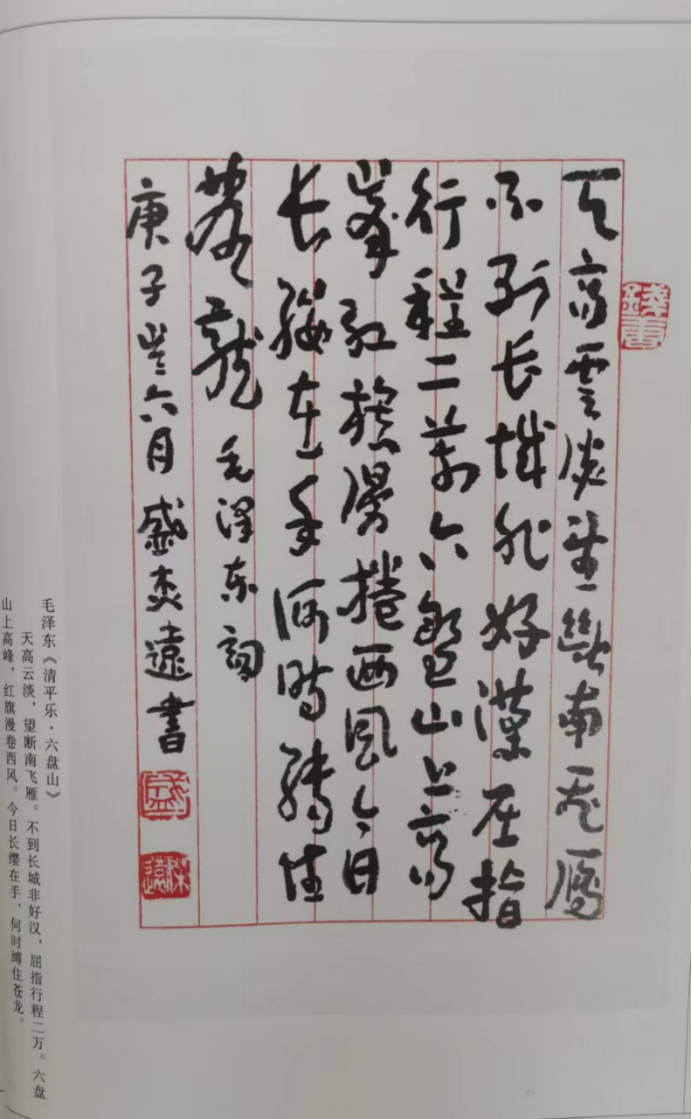 天高雲淡望斷南飛雁
不到长城非好漢屈指
行程二萬六盤山上高
峯红旗漫捲西风今日
长缨在手何時缚住
蒼龍毛泽东詞
庚子岁六月盛杰遠書
盛
毛泽东《清平乐·六盘山》
天高云淡，望断南飞雁。不到长城非好汉，屈指行程二万。六盘
山上高峰，红旗漫卷西风。今日长缨在手，何时缚住苍龙。